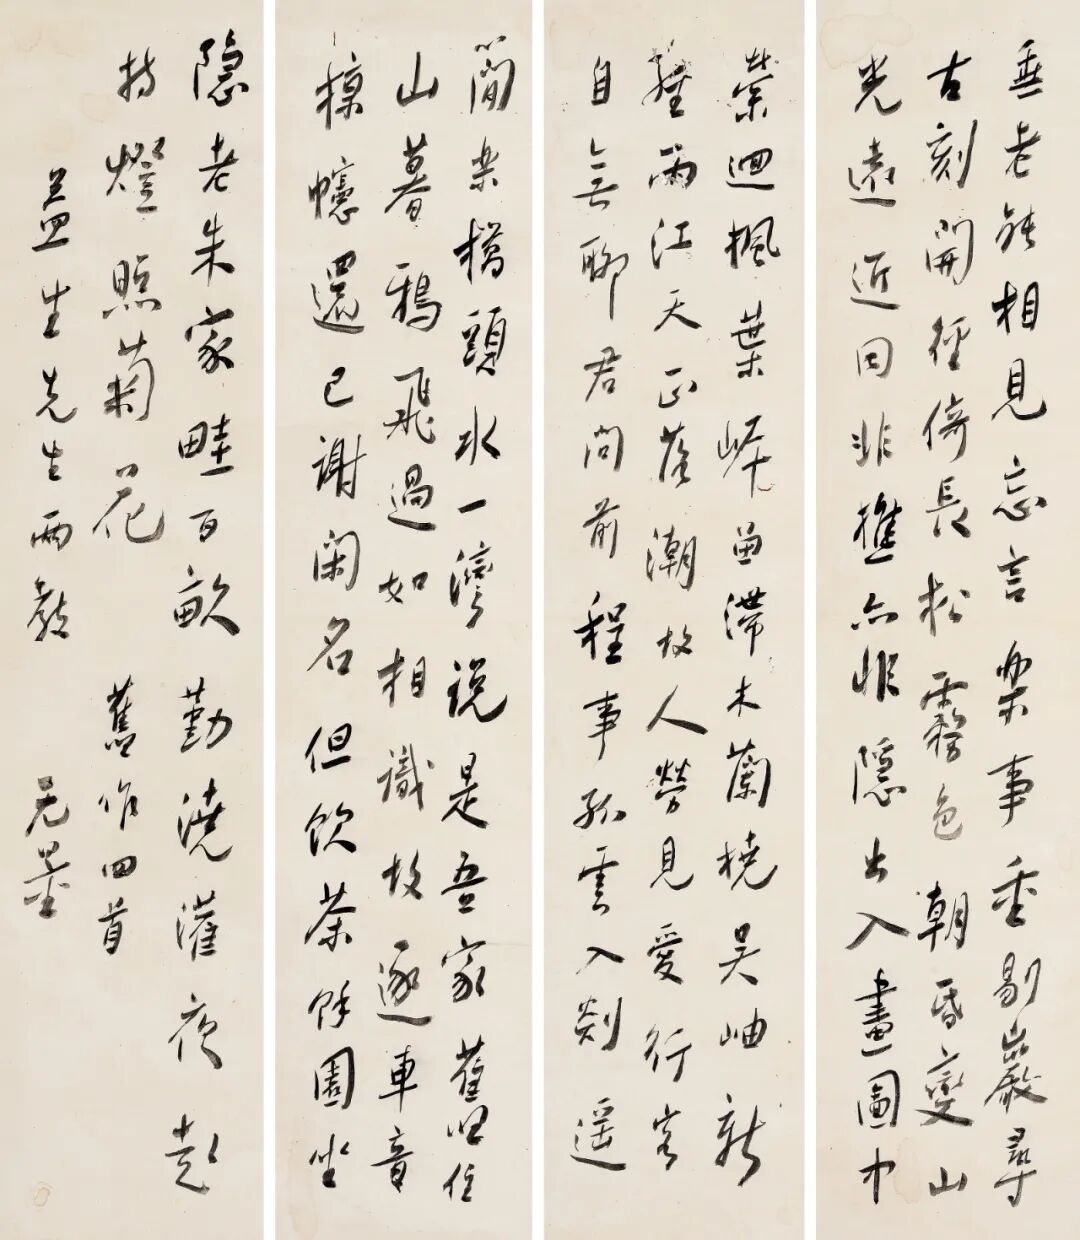 垂老能相见忘言乐事重剔巖尋
古刻開徑倚長松霧色朝昏變山
光遠近同非樵亦非隱出入畫圖中
縈迴楓葉岸留滯木蘭橈吴岫新
經雨江天正落潮故人勞見愛行客
自無聊君问前程事孤雲入剡遥
簡栗橋頭水一灣说是吾家舊里住
山暮鴉飛過如相識故逐車音
幰還已谢闲名但飲茶餘園坐
隐老朱家畦百畝勤澆灌夜起
持燈照菊花 舊作四首
益生先生兩教 无量